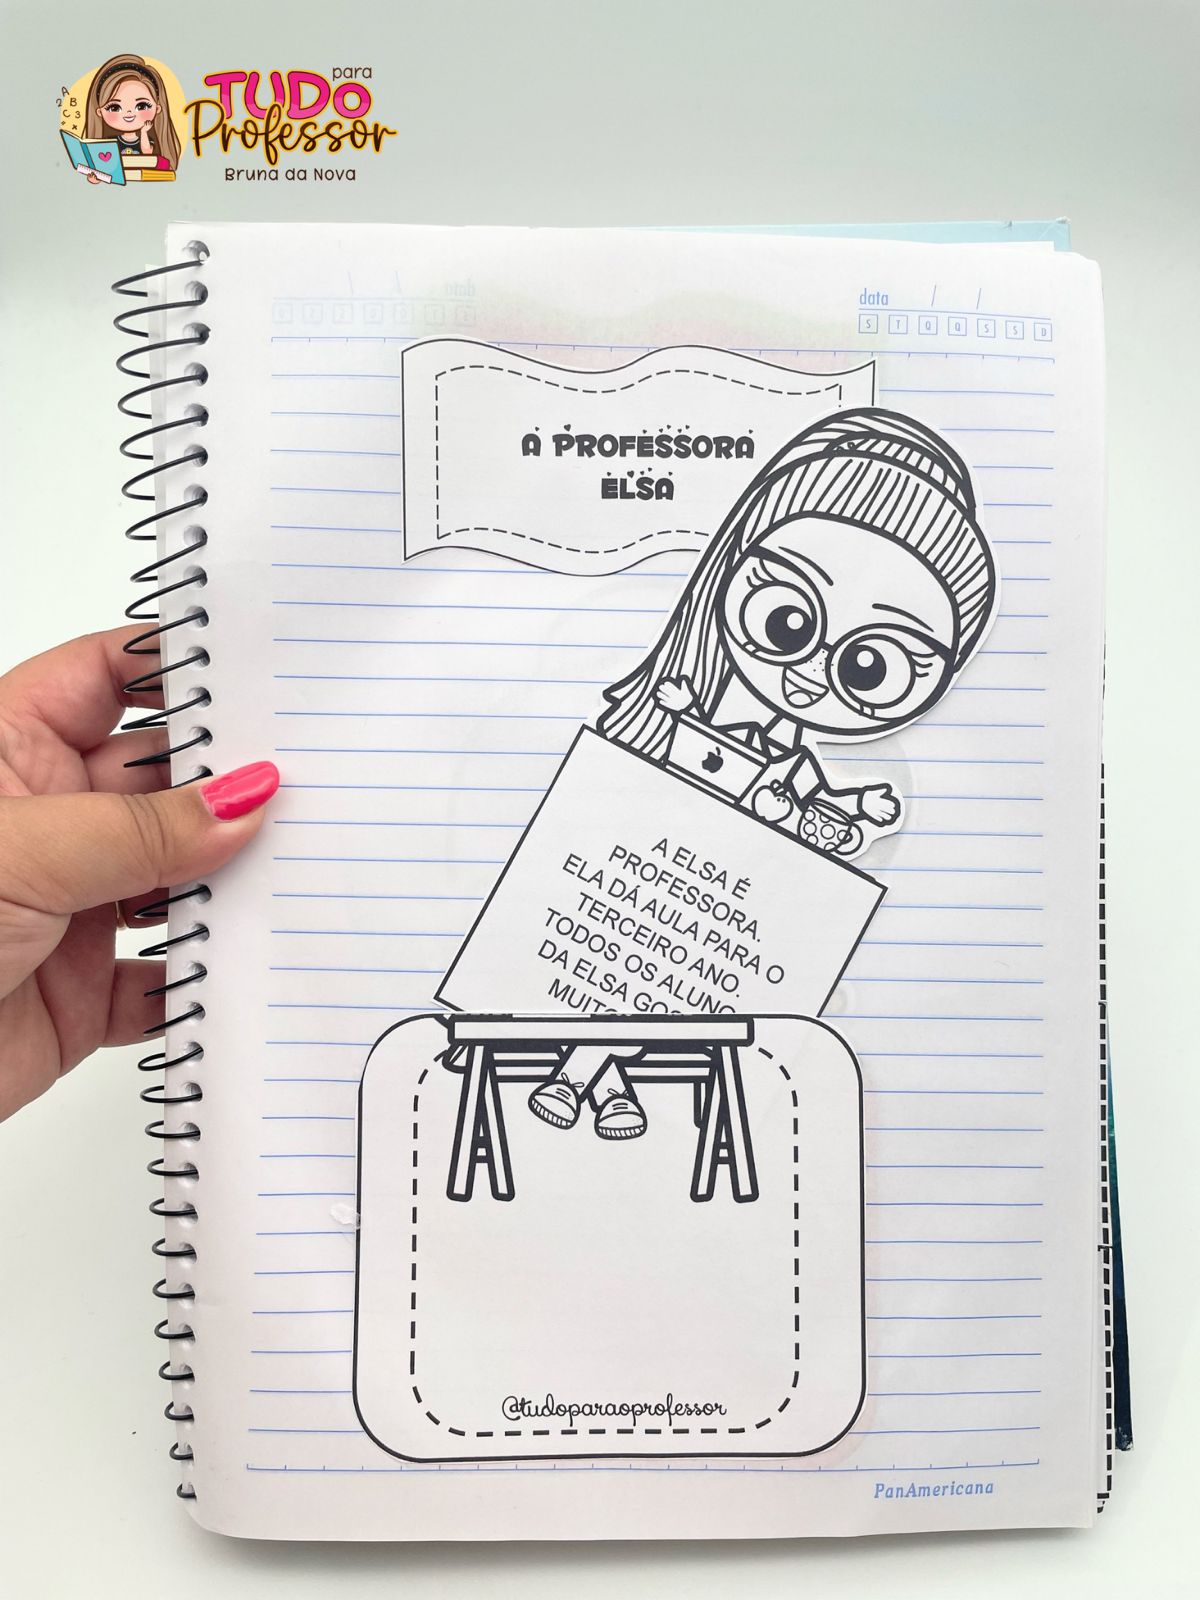 TUDO para
Professor
Bruna da Nova
data / /
S T Q Q S S D
A PROFESSORA
ELSA
A ELSA É
PROFESSORA.
ELA DÁ AULA PARA O
TERCEIRO ANO.
TODOS OS
DA ELSA
@tudoparaoprofessor
PanAmericana